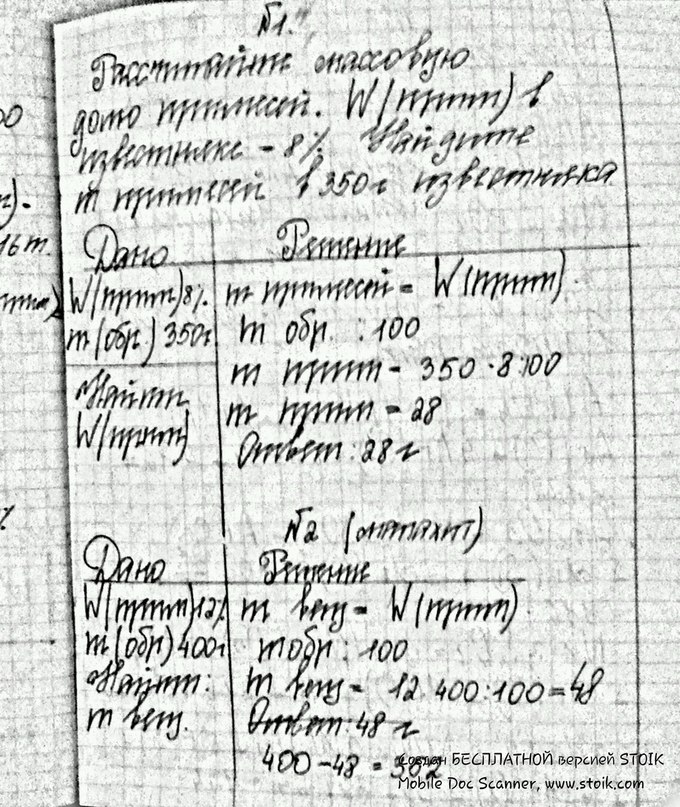 №1.
Рассчитайте массовую
долю примесей. W(прим) в
известняке - 8% Найдите
m примесей в 350г известняка
Дано
Решение
W(прим)8%
m(обр.) 350г
Найти
W(прим)
m примесей = W(прим)·
m обр. :100
m прим = 350 · 8:100
m прим = 28
Ответ: 28 г
№2 (малахит)
Дано
Решение
W(прим)12%
m(обр) 400г
Найти:
m вещ.
m вещ = W(прим)·
m обр : 100
m вещ = 12 400:100=48
Ответ: 48 г
400-48 =
Создан БЕСПЛАТНОЙ версией STOIK
Mobile Doc Scanner, www.stoik.com
00
16 m.
%